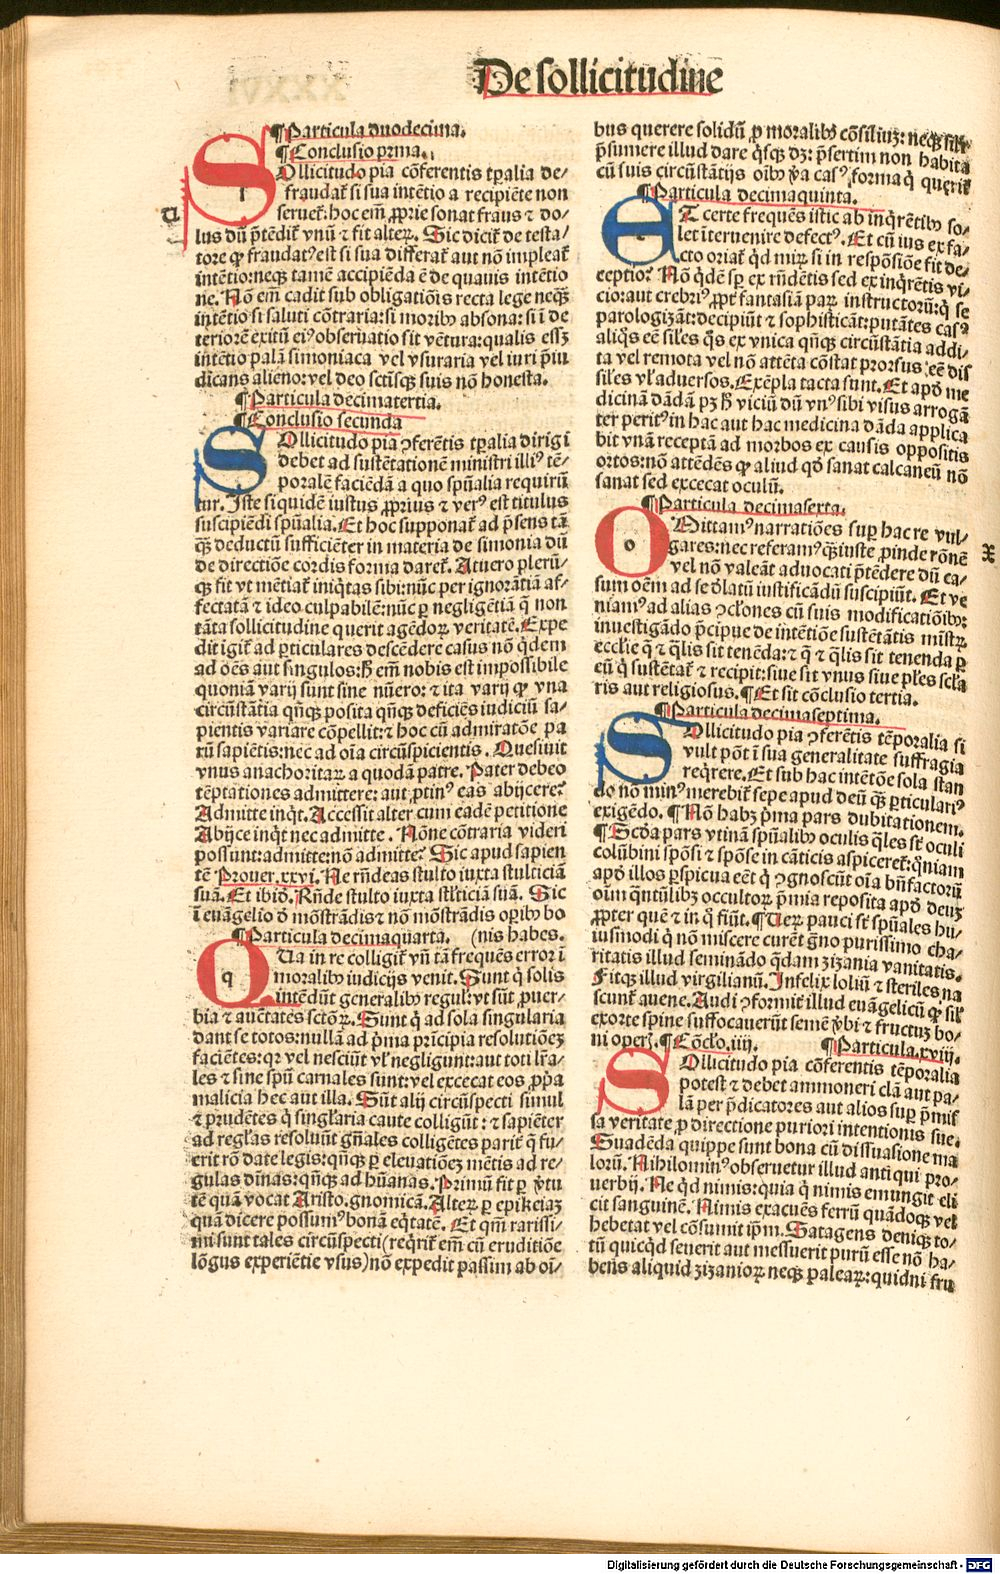 De sollicitudine
¶Particula duodecima.
¶Conclusio prma.
SOllicitudo pia cōferentis tꝑalia de-
fraudat̄ si sua intētio a recipiēte non
seruet̄: hoc em̄ ꝓprie sonat fraus ⁊ do-
lus dū p̄tēdit̄ vnū ⁊ fit alteꝝ. Sic dicit̄ de testa-
tore ꝙ fraudatꝰ est si sua differat̄ aut nō impleat̄
intētio: neqꝫ tamē accipiēda ē de quauis intētio
ne. Nō em̄ cadit sub obligatiōis recta lege neqꝫ
intētio si saluti cōtraria: si moribꝰ absona: si ī de
teriorē exitū eiꝰ obseruatio sit vētura: qualis essꝫ
intētio palā simoniaca vel vsuraria vel iuri p̄iu
dicans alieno: vel deo sctīsqꝫ suis nō honesta.
¶Particula decimatertia.
¶Conclusio secunda
SOllicitudo pia ꝯferētis tꝑalia dirigi
debet ad sustētationē ministri illiꝰ tē-
poralē faciēdā a quo spūalia requirū
tur. Iste siquidē iustus ꝓprius ⁊ verꝰ est titulus
suscipiēdi spūalia. Et hoc supponat̄ ad p̄sens tā
qꝫ deductū sufficiēter in materia de simonia dū
de directiōe cordis forma daret̄. At uero plerū-
qꝫ fit vt mētiat̄ iniqtas sibi: nūc per ignorātiā af-
fectatā ⁊ ideo culpabilē: nūc ꝑ negligētiā q̄ non
tāta sollicitudine querit agēdoꝝ veritatē. Expe
dit igit̄ ad ꝑticulares descēdere casus nō qdem
ad oēs aut singulos: hͦ em̄ nobis est impossibile
quoniā varij sunt sine nūero: ⁊ ita varij ꝙ vna
circūstātia qn̄qꝫ posita qn̄qꝫ deficiēs iudiciū sa-
pientis variare cōpellit: ⁊ hoc cū admiratōe pa
rū sapiētis: nec ad oīa circūspicientis. Quesiuit
vnus anachoritaꝝ a quodā patre. Pater debeo
tēptationes admittere: aut ꝓtinꝰ eas abijcere?
Admitte inqt. Accessit alter cum eadē petitione
Abijce inqt nec admitte. Nōne cōtraria videri
possunt: admitte: nō admitte? Sic apud sapien
tē Prouer. xxvi. Ne rn̄deas stulto iuxta stulticiā
suā. Et ibid̄. Rn̄de stulto iuxta stl̄ticiā suā. Sic
ī euāgelio d̓ mōstrādis ⁊ nō mōstrādis oꝑibꝰ bo
¶Particula decimaquarta. (nis habes.
QUa in re colligit̄ vn̄ tā frequēs error i
moralibꝰ iudicijs venit. Sunt q̇ solis
intēdūt generalibꝰ regul̓: vt sūt ꝓuer-
bia ⁊ auētates sctōꝝ. Sunt q̇ ad sola singularia
dant se totos: nullā ad p̄ma pricipia resolutiōeꝫ
faciētes: qꝛ vel nesciūt vl̓ negligunt: aut toti lr̄a-
les ⁊ sine spū carnales sunt: vel excecat eos ꝓp̄a
malicia hec aut illa. Sūt alij circūspecti simul
⁊ prudētes q̇ singl̓aria caute colligūt: ⁊ sapiēter
ad regl̓as resoluūt gn̄ales colligētes parit̄ q̄ fu-
erit rō date legis: qn̄qꝫ ꝑ eleuatiōeꝫ mētis ad re-
gulas diuīas: qn̄qꝫ ad hūanas. Primū fit ꝑ v̓tu
tē quā vocat Aristo. gnomicā. Alteꝝ ꝑ epikeiaꝫ
quā dicere possumꝰ bonā eq̇tatē. Et qm̄ rarissi-
mi sunt tales circūspecti (reqrit̄ em̄ cū eruditiōe
lōgus experiētie vsus) nō expedit passim ab oī-
bus querere solidū ꝓ moralibꝰ cōsiliuꝫ: neqꝫ silr̄
p̄sumere illud dare qsqꝫ dꝫ: p̄sertim non habita
cū suis circūstātijs oībꝰ v̓a casꝰ forma q̇ querit̄
¶Particula decimaquinta.
ET certe frequēs istic ab inqrētibꝰ so-
let īteruenire defectꝰ. Et cū ius ex fa-
cto oriat̄ qd mirꝫ si in respōsiōe fit de-
ceptio? Nō qdē sꝑ ex rn̄dētis sed ex inqrētis vi-
cio: aut crebriꝰ ꝓut fantasiā paꝝ instructorū: q̇ se
paralogizāt: decipiūt ⁊ sophisticāt: putātes casꝰ
aliqs eē sil̓es qs ex vnica qn̄qꝫ circūstātia addi-
ta vel remota vel nō attēta cōstat prorsus eē dis
sil̓es vl̓ aduersos. Exēpla tacta sunt. Et apd̓ me
dicinā dādā pꝫ hͦ viciū dū vnꝰ sibi visus arrogā
ter peritꝰ in hac aut hac medicina dāda applica
bit vnā receptā ad morbos ex causis oppositis
ortos: nō attēdēs ꝙ aliud qd̓ sanat calcaneū nō
sanat sed excecat oculū.
¶Particula decimasexta.
OMittamꝰ narratiōes suꝑ hac re vul-
gares: nec referamꝰ qꝫ iuste ꝓinde rōnē
vel nō valeāt aduocati p̄tēdere dū ca-
sum oēm ad se d̓latū iustificādū suscipiūt. Et ve
niamꝰ ad alias ꝯcl̓ones cū suis modificatiōibꝰ:
inuestigādo p̄cipue de intētiōe sustētātis mīstꝝ
eccl̓ie q̄ ⁊ ql̓is sit tenēda: ⁊ q̄ ⁊ ql̓is sit tenenda ꝑ
eū q̇ sustētat̄ ⁊ recipit: siue sit vnus siue pl̓es scl̓a
ris aut religiosus. ¶Et sit cōclusio tertia.
¶Particula decimaseptima.
SOllicitudo pia ꝯferētis tēporalia si
vult pōt ī sua generalitate suffragia
reqrere. Et sub hac intētōe sola stan
do nō minꝰ merebit̄ sepe apud deū qꝫ ꝑticulariꝰ
exigēdo. ¶Nō habꝫ p̄ma pars dubitationem.
¶Scd̓a pars vtinā spūalibꝰ oculis ql̓es st̄ oculi
colūbini spōsi ⁊ spōse in cāticis aspiceret̄: qm̄iam
apd̓ illos ꝑspicua eēt q̇ ꝯgnoscūt oīa bn̄factorū
oīm qn̄tūlibꝫ occultoꝝ p̄mia reposita apd̓ deuꝫ
ꝓpter quē ⁊ in q̇ fiūt. ¶Ueꝝ pauci st̄ spūales hu-
iusmodi q̇ nō miscere curēt g̓no purissimo cha-
ritatis illud seminādo qdam zizania vanitatis.
Fitqꝫ illud virgilianū. Infelix loliū ⁊ steriles na
scunt̄ auene. Audi ꝯformit̄ illud euāgelicū ꝙ sil̓
exorte spine suffocauerūt semē v̓bi ⁊ fructuꝫ bo-
ni oper̄. ¶Cōcl̓o. iiij. ¶Particula. xviij.
SOllicitudo pia cōferentis tēporalia
potest ⁊ debet ammoneri clā aut pa-
lā per p̄dicatores aut alios suꝑ p̄mis
sa veritate ꝓ directione puriori intentionis sue.
Suadēda quippe sunt bona cū dissuasione ma
lorū. Nihilominꝰ obseruetur illud antiqui pro-
uerbij. Ne qd nimis: quia q̇ nimis emungit eli
cit sanguinē. Nimis exacuēs ferrū quādoqꝫ vel
hebetat vel cōsumit ip̄m. Satagens deniqꝫ to-
tū quicqd seuerit aut messuerit purū esse nō ha-
bens aliquid zizanioꝝ neqꝫ paleaꝝ: quidni fru
Digitalisierung gefördert durch die Deutsche Forschungsgemeinschaft - DFG